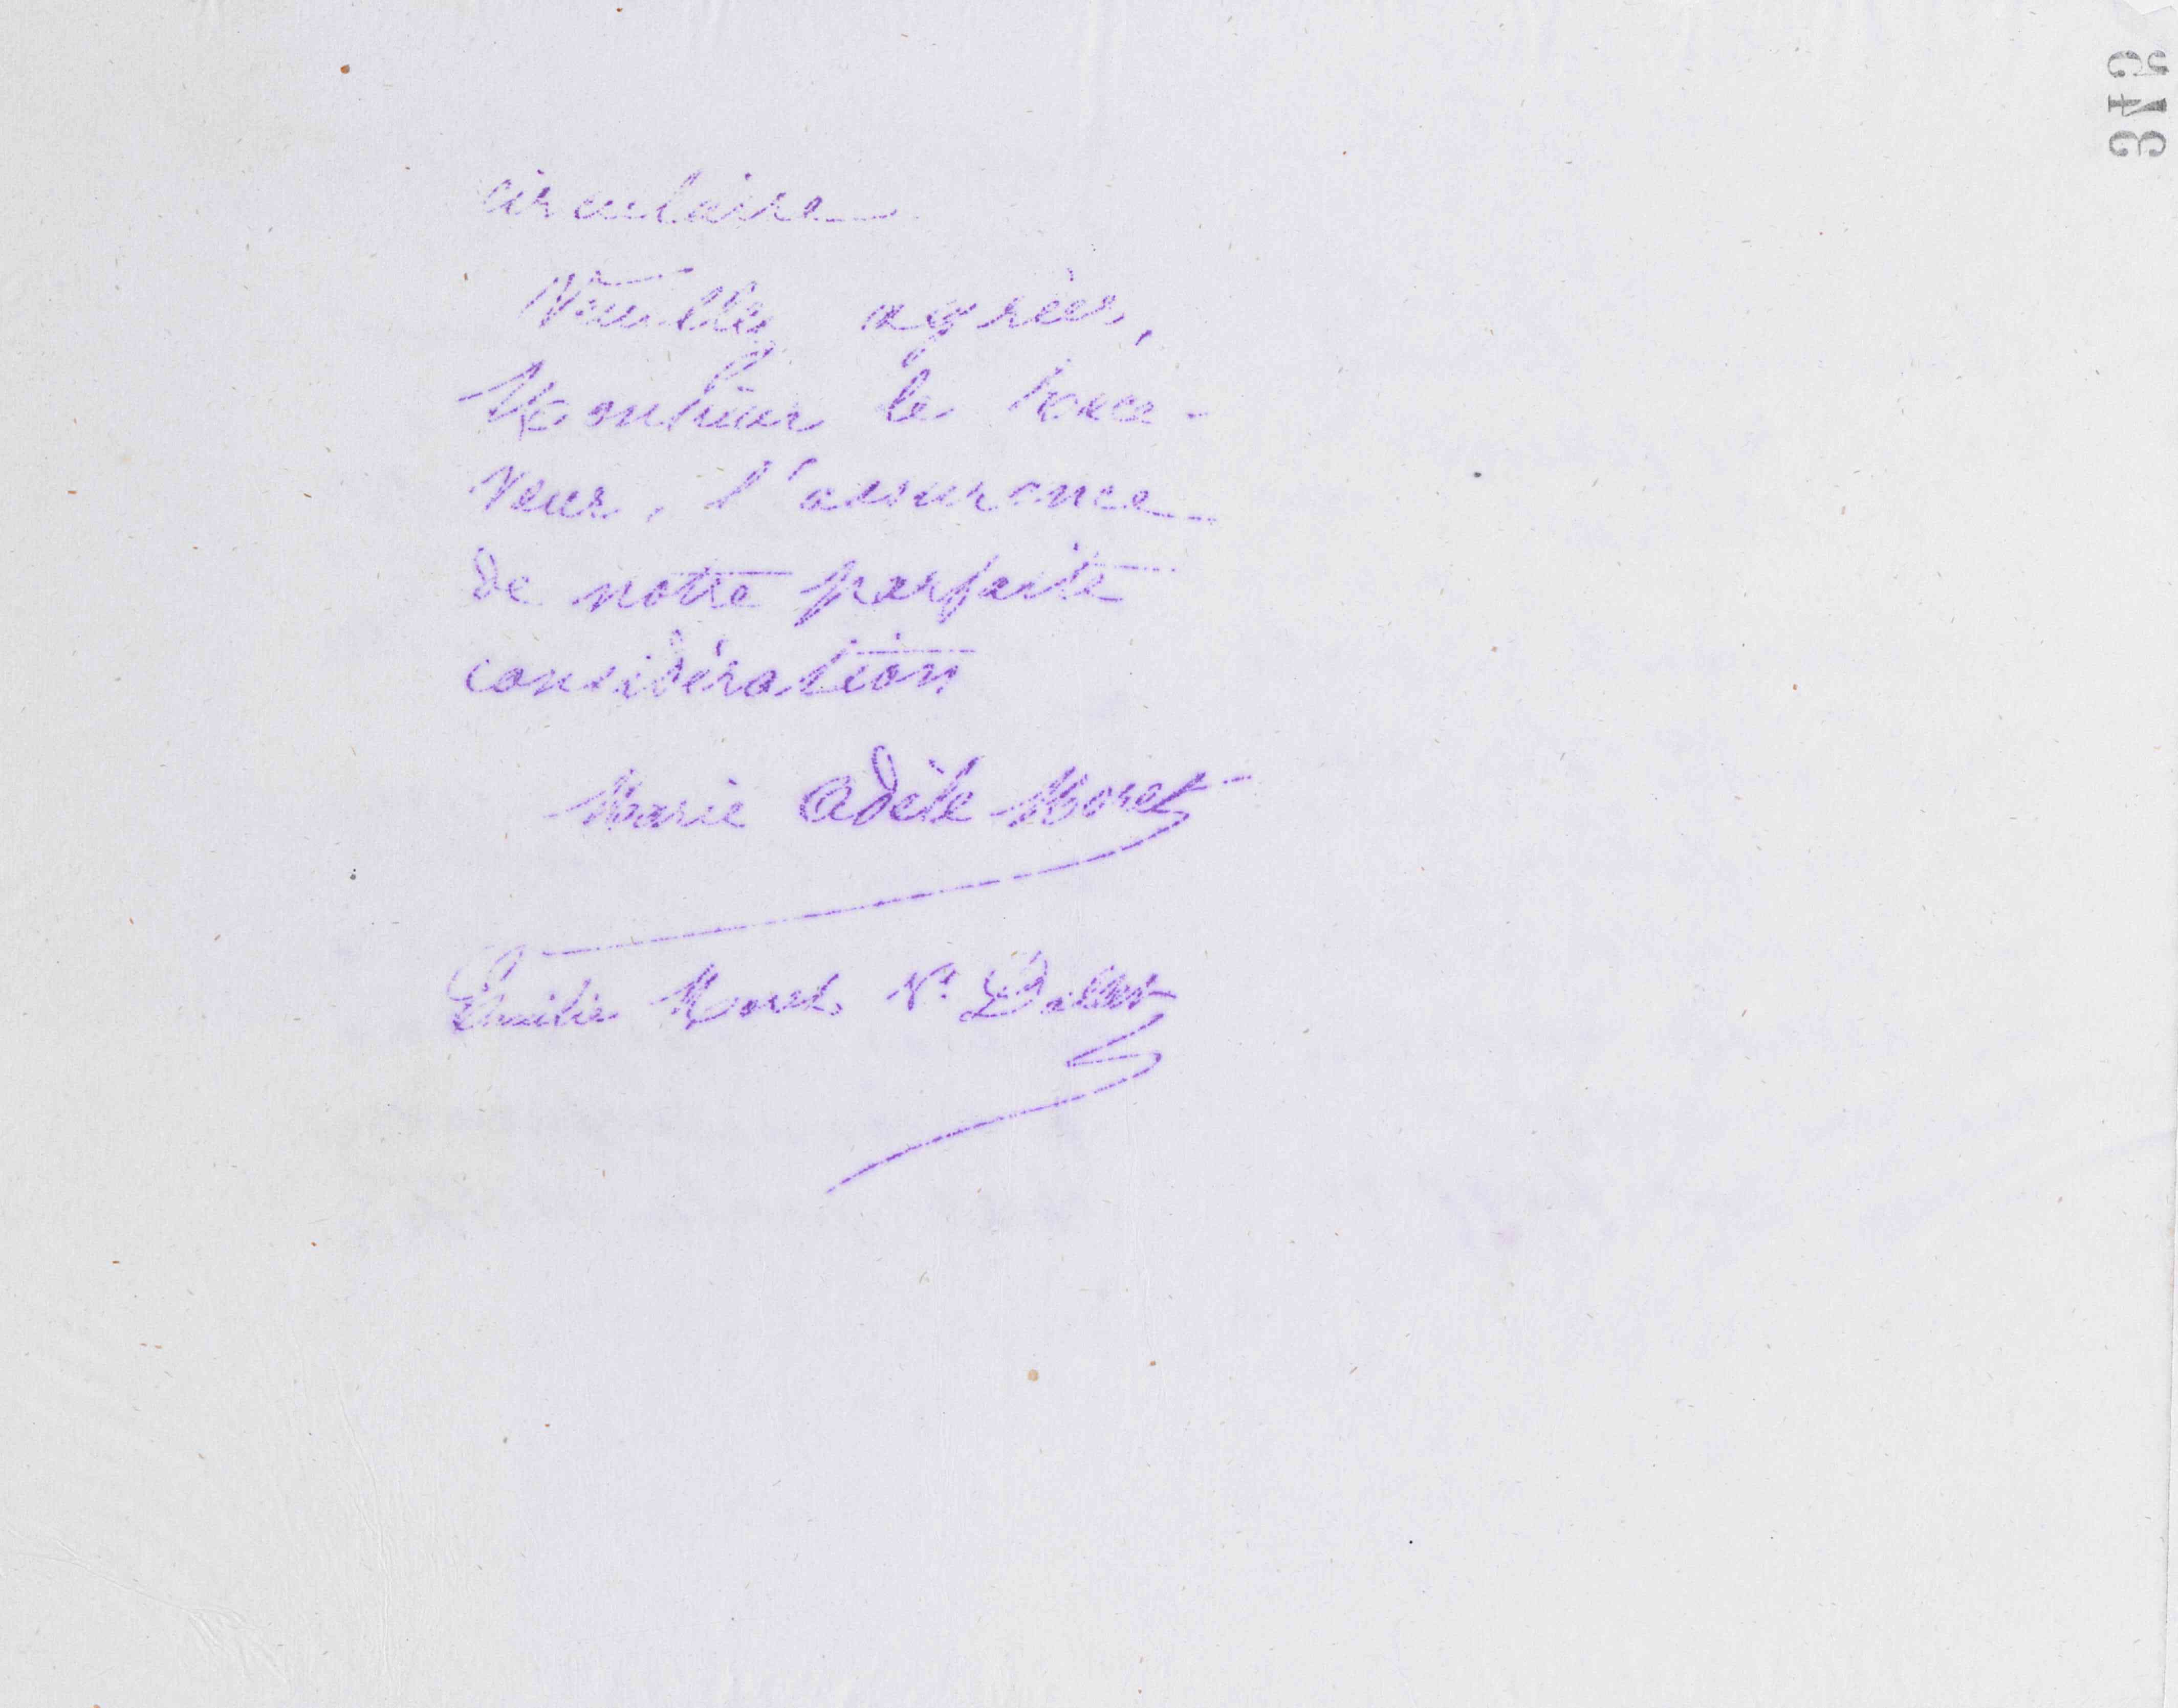 345
circulaire
Veuillez agréer,
Monsieur le Rece-
veur, l'assurance
de notre parfaite
considération
Marie Adèle Moret
Émilie Moret Vᵉ Dallet